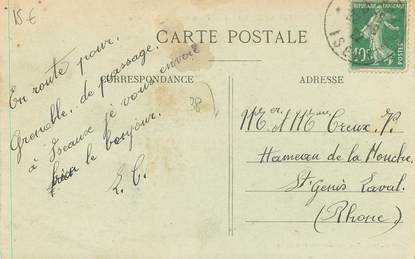 15 €
CARTE POSTALE
CORRESPONDANCE
ADRESSE
REPUBLIQUE FRANÇAISE
10c
POSTES
ISE
En route pour
Grenoble, de passage
à Izeaux je vous envoie
le bonjour.
E. C.
38
Mr et Mme Creux
Hameau de la Mouche
St Genis Laval
(Rhône)